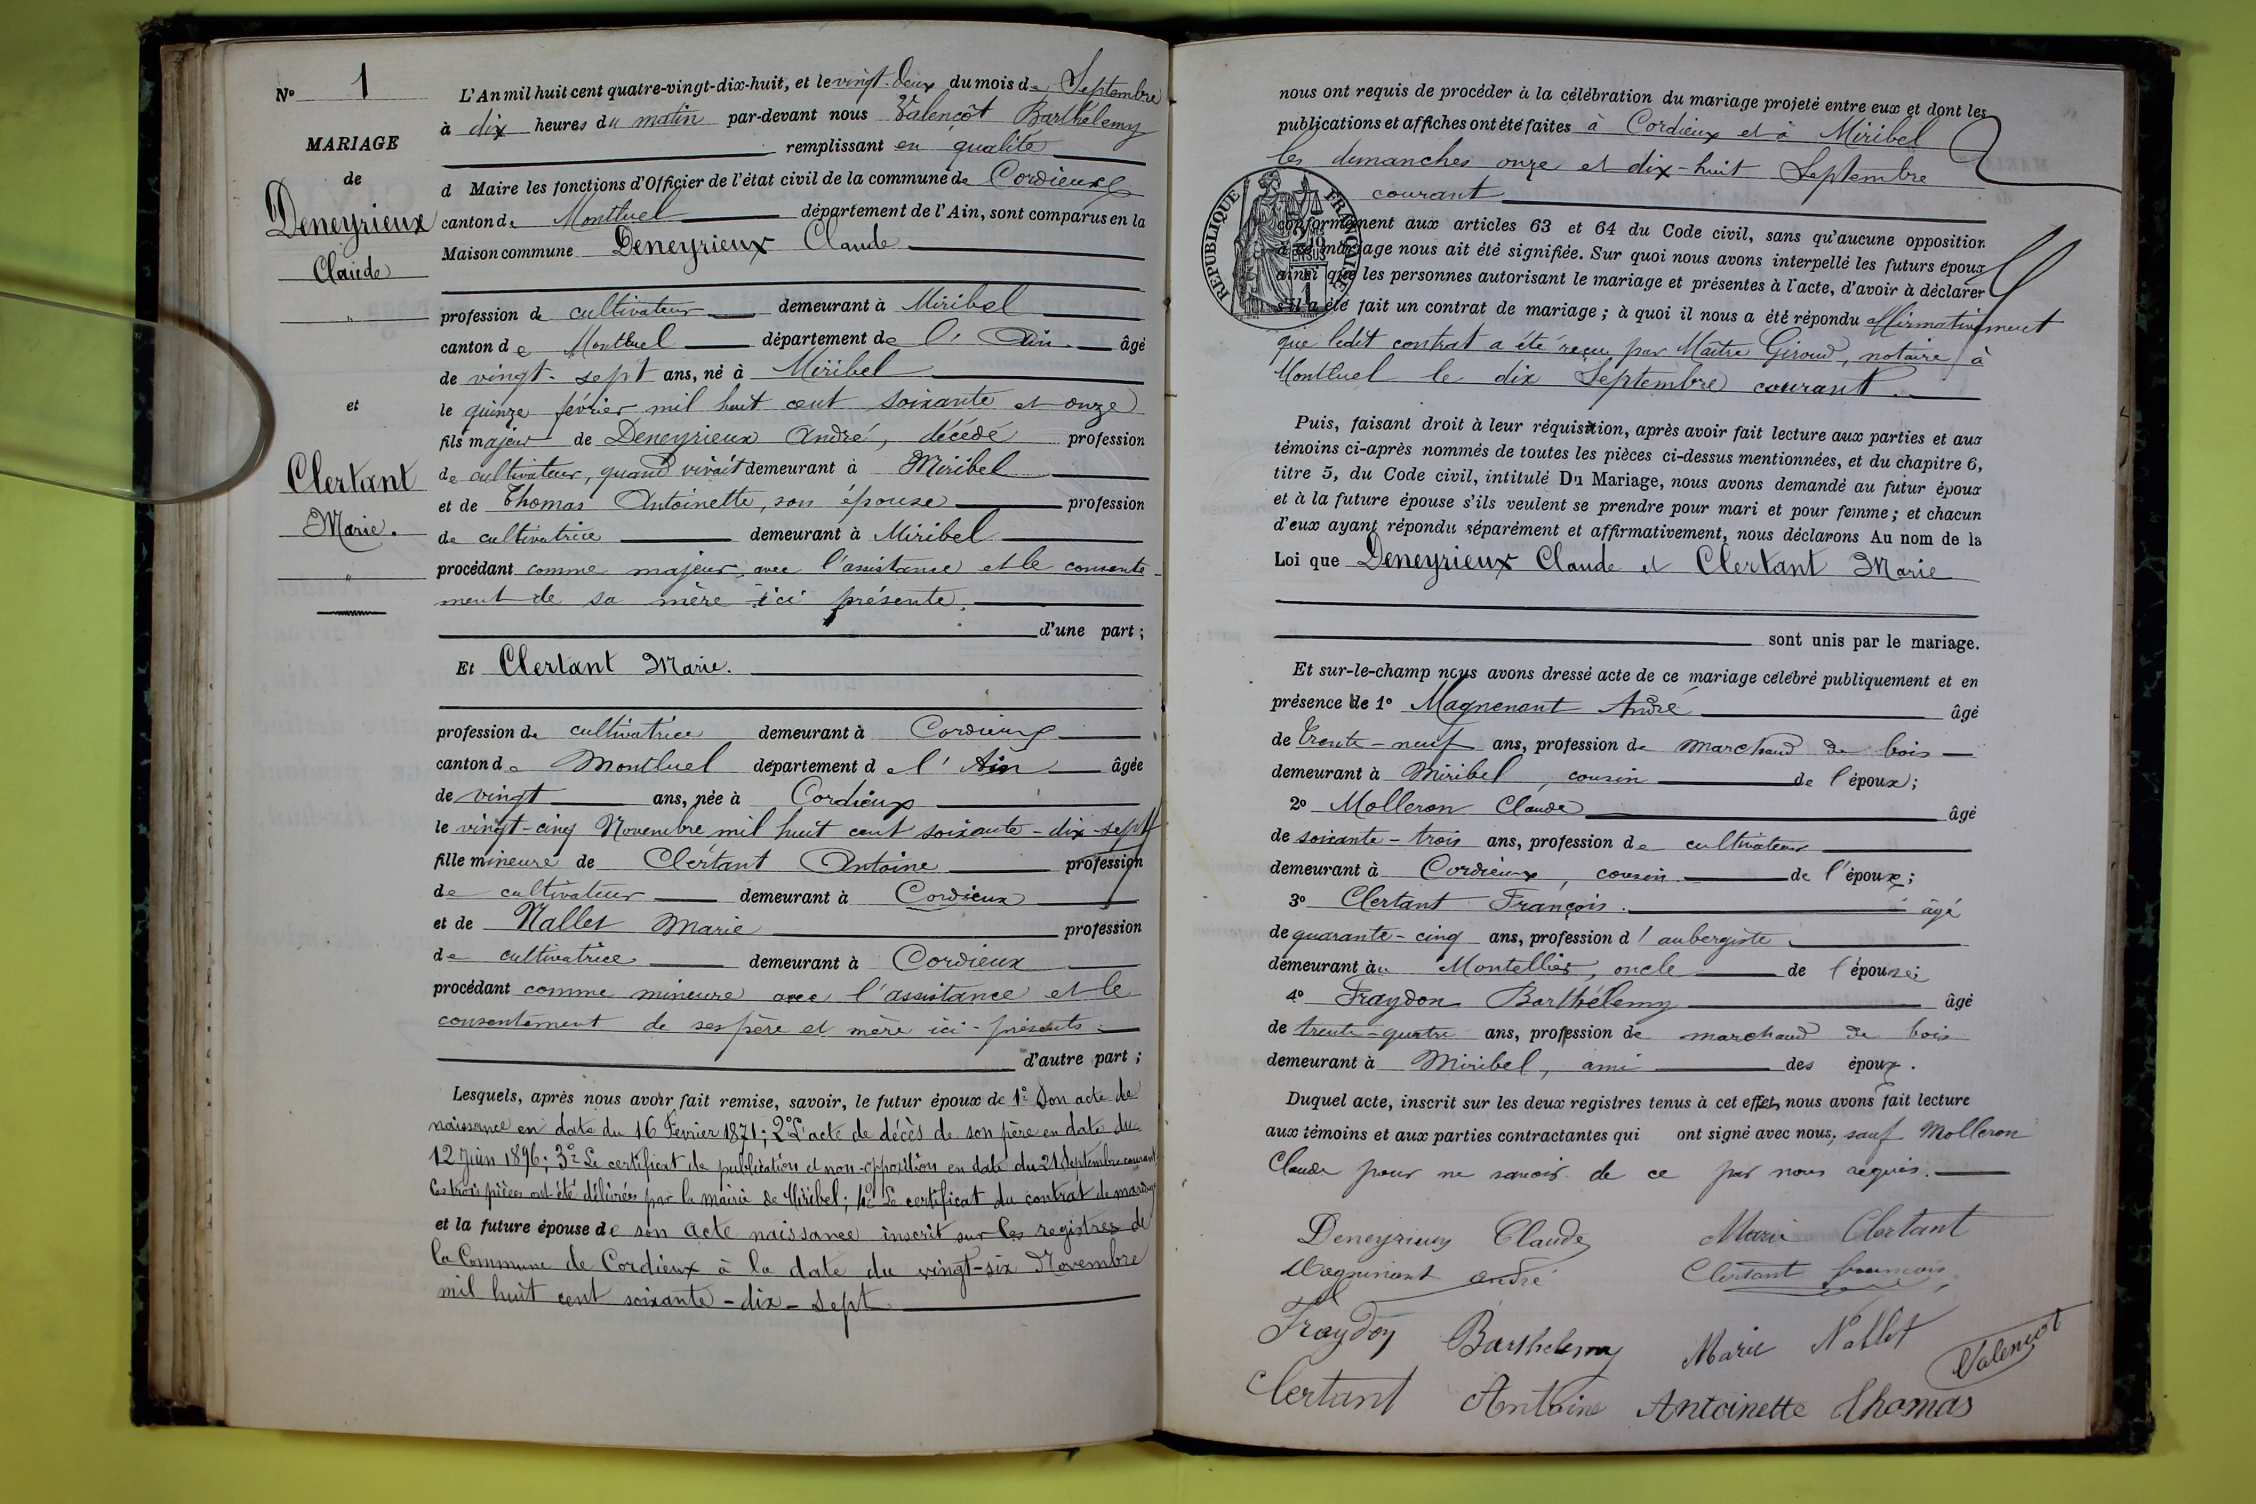 N° 1
MARIAGE
de
Deneyrieux
Claude
"
et
Clertant
Marie.
"
L'An mil huit cent quatre-vingt-dix-huit, et le vingt-deux du mois de Septembre
à dix heures du matin par-devant nous Valençôt Barthélemy
remplissant en qualité
d Maire les fonctions d'Officier de l'état civil de la commune de Cordieux
canton de Montluel département de l'Ain, sont comparus en la
Maison commune Deneyrieux Claude
profession de cultivateur demeurant à Miribel
canton de Montluel département de l'Ain âgé
de vingt-sept ans, né à Miribel
le quinze février mil huit cent soixante et onze
fils majeur de Deneyrieux André, décédé profession
de cultivateur, quand vivait demeurant à Miribel
et de Thomas Antoinette, son épouse profession
de cultivatrice demeurant à Miribel
procédant comme majeur, avec l'assistance et le consente-
ment de sa mère ici présente,
d'une part;
Et Clertant Marie.
profession de cultivatrice demeurant à Cordieux
canton de Montluel département de l'Ain âgée
de vingt ans, née à Cordieux
le vingt-cinq Novembre mil huit cent soixante-dix-sept
fille mineure de Clertant Antoine profession
de cultivateur demeurant à Cordieux
et de Nallet Marie profession
de cultivatrice demeurant à Cordieux
procédant comme mineure avec l'assistance et le
consentement de ses père et mère ici-présents.
d'autre part;
Lesquels, après nous avoir fait remise, savoir, le futur époux de 1° Son acte de
naissance en date du 16 Février 1871; 2° L'acte de décès de son père en date du
12 Juin 1896; 3° Le certificat de publication et non-opposition en date du 21 Septembre courant
Ces trois pièces ont été délivrées par la mairie de Miribel; 4° Le certificat du contrat de mariage
et la future épouse de son acte naissance inscrit sur les registres de
la Commune de Cordieux à la date du vingt-six Novembre
mil huit cent soixante-dix-sept
nous ont requis de procéder à la célébration du mariage projeté entre eux et dont les
publications et affiches ont été faites à Cordieux et à Miribel
les dimanches onze et dix-huit Septembre
courant
RÉPUBLIQUE FRANÇAISE
conformément aux articles 63 et 64 du Code civil, sans qu'aucune opposition
à ce mariage nous ait été signifiée. Sur quoi nous avons interpellé les futurs époux
ainsi que les personnes autorisant le mariage et présentes à l'acte, d'avoir à déclarer
s'il a été fait un contrat de mariage; à quoi il nous a été répondu affirmativement
que ledit contrat a été reçu par Maître Giroud, notaire à
Montluel le dix Septembre courant.
Puis, faisant droit à leur réquisition, après avoir fait lecture aux parties et aux
témoins ci-après nommés de toutes les pièces ci-dessus mentionnées, et du chapitre 6,
titre 5, du Code civil, intitulé Du Mariage, nous avons demandé au futur époux
et à la future épouse s'ils veulent se prendre pour mari et pour femme; et chacun
d'eux ayant répondu séparément et affirmativement, nous déclarons Au nom de la
Loi que Deneyrieux Claude et Clertant Marie
sont unis par le mariage.
Et sur-le-champ nous avons dressé acte de ce mariage célébré publiquement et en
présence de 1° Magnenant André âgé
de trente-neuf ans, profession de marchand de bois
demeurant à Miribel, cousin de l'époux;
2° Molleron Claude âgé
de soixante-trois ans, profession de cultivateur
demeurant à Cordieux, cousin de l'époux;
3° Clertant François. âgé
de quarante-cinq ans, profession d'aubergiste
demeurant au Montellier, oncle de l'épouse;
4° Fraydon Barthélemy âgé
de trente-quatre ans, profession de marchand de bois
demeurant à Miribel, ami des époux.
Duquel acte, inscrit sur les deux registres tenus à cet effet, nous avons fait lecture
aux témoins et aux parties contractantes qui ont signé avec nous, sauf Molleron
Claude pour ne savoir de ce par nous requis.
Deneyrieux Claude Marie Clertant
Magnenant andré Clertant françois
Fraydon Barthelemy Marie Nallet Valençot
Clertant Antoine Antoinette Thomas